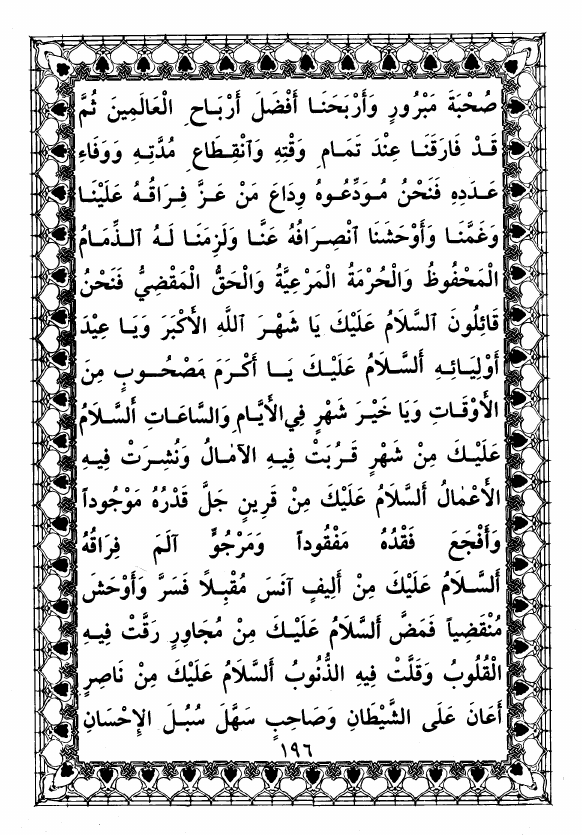 صُحْبَةَ مَبْرُورٍ وَأَرْبَحَنَا أَفْضَلَ أَرْبَاحِ الْعَالَمِينَ ثُمَّ
قَدْ فَارَقَنَا عِنْدَ تَمَامِ وَقْتِهِ وَٱنْقِطَاعِ مُدَّتِهِ وَوَفَاءِ
عَدَدِهِ فَنَحْنُ مُوَدِّعُوهُ وِدَاعَ مَنْ عَزَّ فِرَاقُهُ عَلَيْنَا
وَغَمَّنَا وَأَوْحَشَنَا ٱنْصِرَافُهُ عَنَّا وَلَزِمَنَا لَهُ ٱلذِّمَامُ
الْمَحْفُوظُ وَالْحُرْمَةُ الْمَرْعِيَّةُ وَالْحَقُّ الْمَقْضِيُّ فَنَحْنُ
قَائِلُونَ ٱلسَّلَامُ عَلَيْكَ يَا شَهْرَ اللَّهِ الأَكْبَرَ وَيَا عِيْدَ
أَوْلِيَائِهِ أَلسَّلَامُ عَلَيْكَ يَا أَكْرَمَ مَصْحُوبٍ مِنَ
الأَوْقَاتِ وَيَا خَيْرَ شَهْرٍ فِي الأَيَّامِ وَالسَّاعَاتِ أَلسَّلَامُ
عَلَيْكَ مِنْ شَهْرٍ قَرُبَتْ فِيهِ الآمَالُ وَنُشِرَتْ فِيهِ
الأَعْمَالُ أَلسَّلَامُ عَلَيْكَ مِنْ قَرِينٍ جَلَّ قَدْرُهُ مَوْجُوداً
وَأَفْجَعَ فَقْدُهُ مَفْقُوداً وَمَرْجُوٍّ آلَمَ فِرَاقُهُ
أَلسَّلَامُ عَلَيْكَ مِنْ أَلِيفٍ آنَسَ مُقْبِلاً فَسَرَّ وَأَوْحَشَ
مُنْقَضِياً فَمَضَّ أَلسَّلَامُ عَلَيْكَ مِنْ مُجَاوِرٍ رَقَّتْ فِيهِ
الْقُلُوبُ وَقَلَّتْ فِيهِ الذُّنُوبُ أَلسَّلَامُ عَلَيْكَ مِنْ نَاصِرٍ
أَعَانَ عَلَى الشَّيْطَانِ وَصَاحِبٍ سَهَّلَ سُبُلَ الإِحْسَانِ
١٩٦